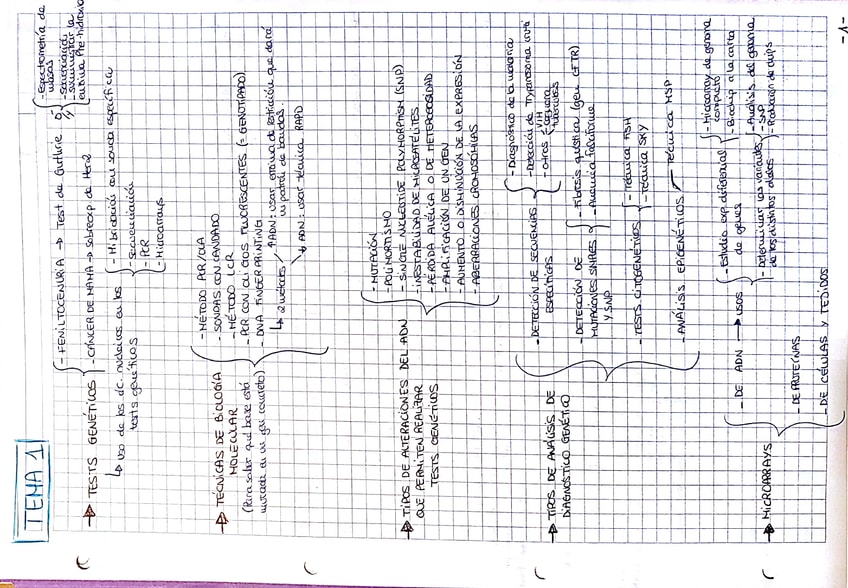 TEMA 1
→ TESTS GENÉTICOS
- FENILTOCENURIA → Test de Guthrie ó
- Espectrometría de masas
- Secuenciación
- suministrar la
enzima Pre-hidroxi
- CÁNCER DE MAMA → sobreexp. de Her2
↳ Uso de los ác. nucleicos en los
tests genéticos
- Hibridación con sonda específica
- Secuenciación
- PCR
- Microarrays
→ TÉCNICAS DE BIOLOGÍA
MOLECULAR
(Para saber qué base está
mutada en un gen concreto)
- MÉTODO PCR/OLA
- SONDAS CON CANDADO
- MÉTODO LCR
- PCR CON OLIGOS FLUORESCENTES (= GENOTIPADO)
- DNA FINGERPRINTING
↳ 2 métodos
↑ ADN: usar enzima de restricción que dará
un patrón de bandas.
↓ ADN: usar técnica RAPD
→ TIPOS DE ALTERACIONES DEL ADN
QUE PERMITEN REALIZAR
TESTS GENÉTICOS
- MUTACIÓN
- POLIMORFISMO
- SINGLE NUCLEOTIDE POLYMORPHISM (SNP)
- INESTABILIDAD DE MICROSATÉLITES
- PÉRDIDA ALÉLICA O DE HETEROCIGOSIDAD
- AMPLIFICACIÓN DE UN GEN
- AUMENTO O DISMINUCIÓN DE LA EXPRESIÓN
- ABERRACIONES CROMOSÓMICAS
→ TIPOS DE ANÁLISIS DE
DIAGNÓSTICO GENÉTICO
- DETECCIÓN DE SECUENCIAS
ESPECÍFICAS
- Diagnóstico de la malaria
- Detección de Trypanosoma cruzi
- Otras
VIH
tuberculosis
- DETECCIÓN DE
MUTACIONES SIMPLES
Y SNP
- Fibrosis quística (gen CFTR)
- Anemia falciforme
- TESTS CITOGENÉTICOS
- Técnica FISH
- Técnica SKY
- ANÁLISIS EPIGENÉTICOS
- Técnica MSP
→ MICROARRAYS
- DE ADN → USOS
- Estudio exp. diferencial
de genes
- Microarray de genoma
completo
- Biochip a la carta
- Determinar las variables
de los distintos alelos
- Análisis del genoma
- SNP
- Realización de chips
- DE PROTEÍNAS
- DE CÉLULAS Y TEJIDOS
-1-